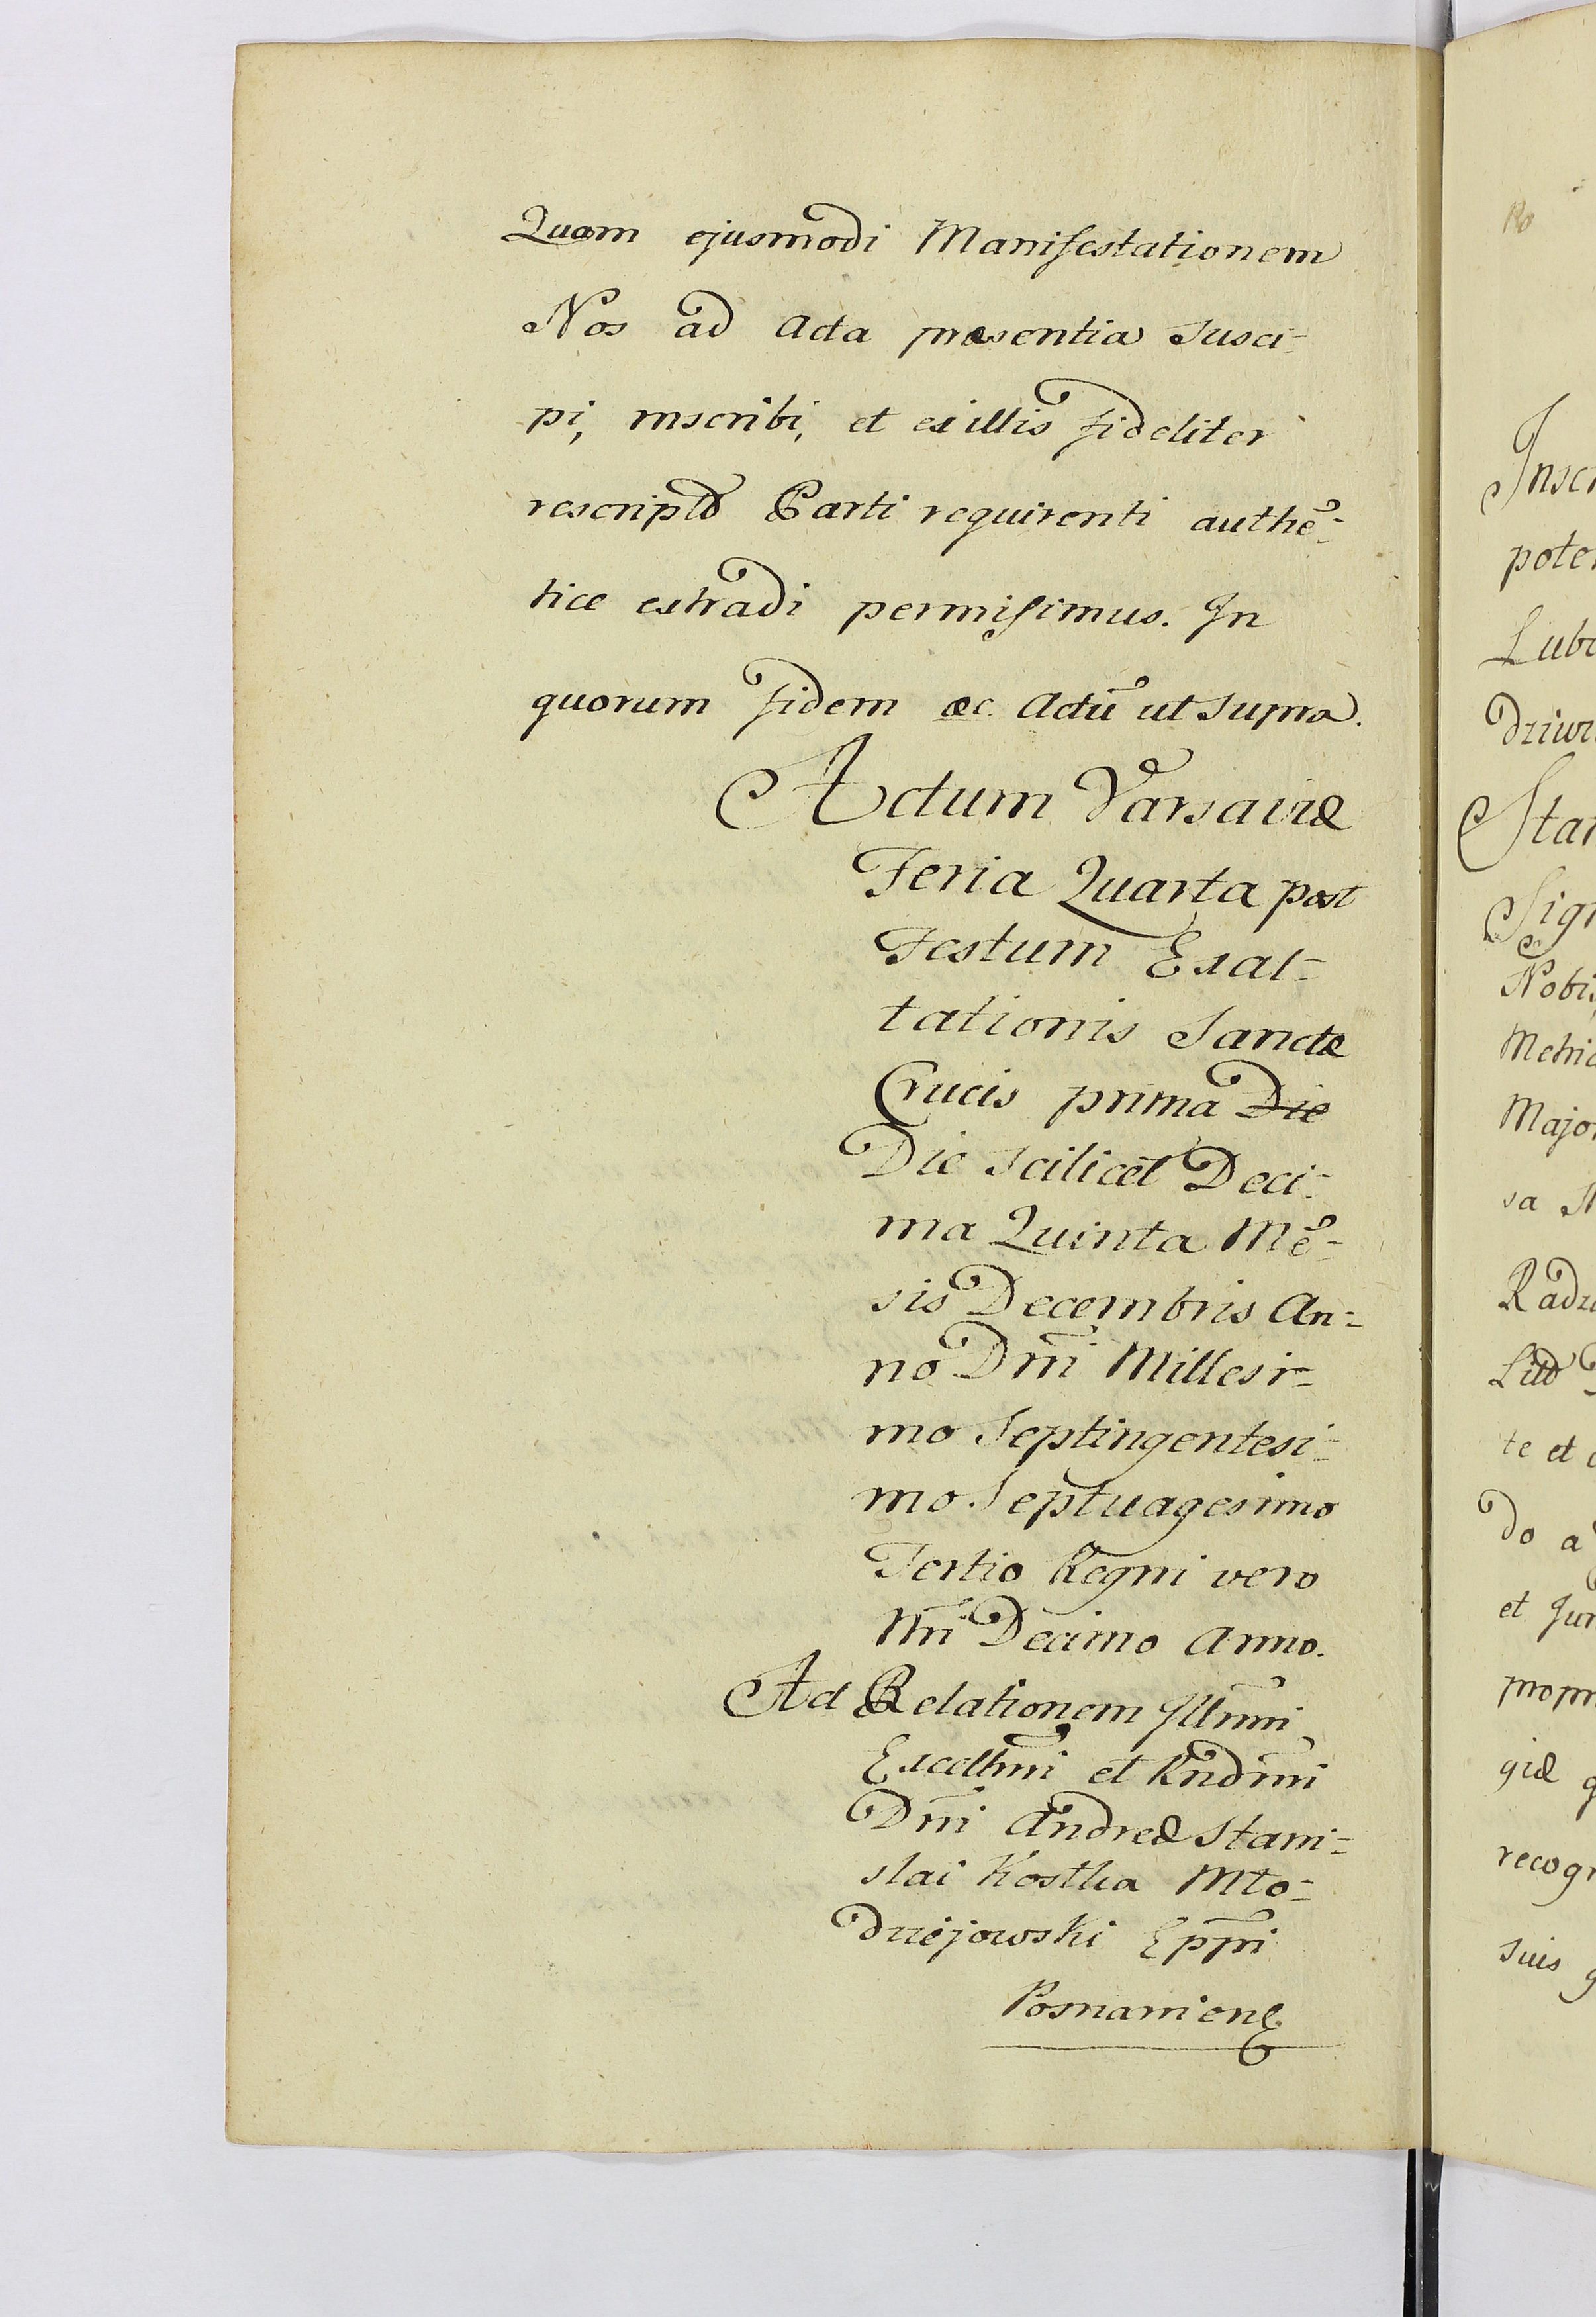 Quam ejusmodi Manifestationem
Nos ad Acta præsentia susci-
pi, inscribi, et ex illis fideliter
rescriptã Parti requirenti authẽ-
tice extradi permisimus. In
quorum fidem &c. Actũ ut supra.
Actum Varsaviæ
Feria Quarta post
Festum Exal-
tationis Sanctæ
Crucis prima Die
Die scilicet Deci-
ma Quinta Mẽ-
sis Decembris An-
no Dñi Millesi-
mo Septingentesi-
mo Septuagesimo
Tertio Regni vero
Nñi Decimo Anno.
Ad Relationem Illmi
Excellmi et Rndmi
Dñi Andreæ Stani-
slai Kostka Mło-
dziejowski Eppi
Posnanien
Inscr
poten
Lub
dziw
Stan
Sig
Nobi
Metric
Major
sa
Radz
te et
do a
et Jur
propr
giæ
recogn
suis